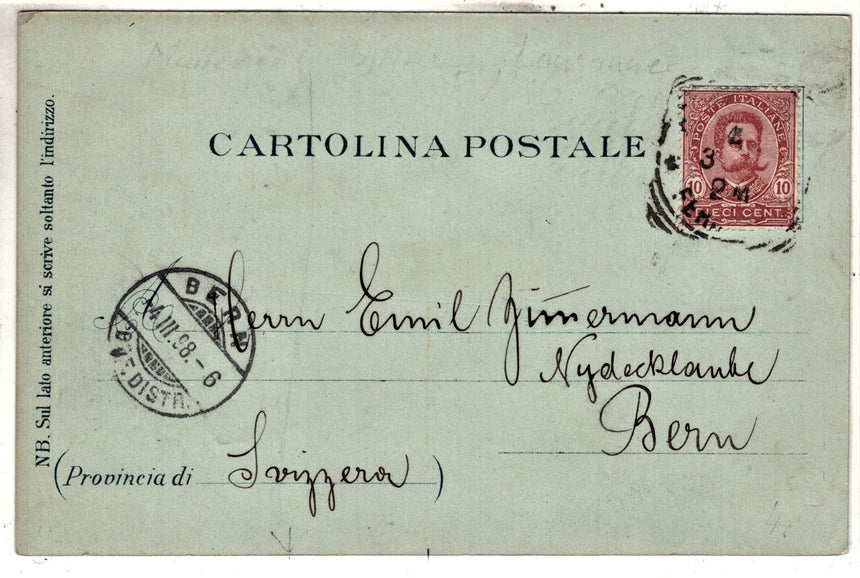 CARTOLINA POSTALE
POSTE ITALIANE
10 10
DIECI CENT.
4
3
2M
NB. Sul lato anteriore si scrive soltanto l'indirizzo.
BERN
4.III.98.-6
BRF. DISTR.
A
Herrn Emil Zimmermann
Nydecklaube
Bern
(Provincia di Svizzera)
4.